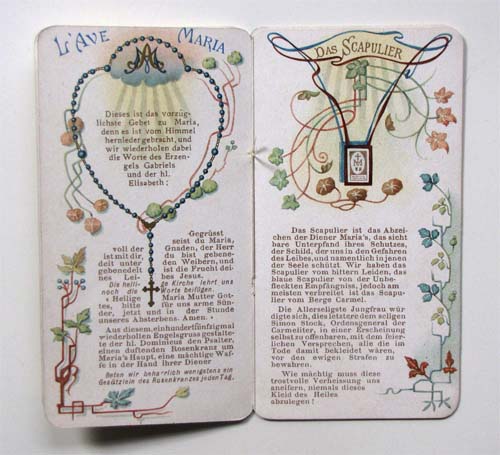 L'AVE MARIA
Dieses ist das vorzüg-
lichste Gebet zu Maria,
denn es ist vom Himmel
herniedergebracht, und
wir wiederholen dabei
die Worte des Erzen-
gels Gabriels
und der hl.
Elisabeth:
Gegrüsst
seist du Maria,
voll der Gnaden, der Herr
ist mit dir, du bist gebene-
deit unter den Weibern, und
gebenedeit ist die Frucht dei-
nes Lei- bes Jesus.
Die heili- ge Kirche lehrt uns
noch die Worte beifügen.
Heilige Maria Mutter Got-
tes, bitte für uns arme Sün-
der, jetzt und in der Stunde
unseres Absterbens. Amen.
Aus diesem, einhundertfünfzigmal
wiederholten Engelsgruss gestalte-
te der hl. Dominicus den Psalter,
einen duftenden Rosenkranz um
Maria's Haupt, eine mächtige Waf-
fe in der Hand ihrer Diener
Beten wir beharrlich wenigstens ein
Gesätzlein des Rosenkranzes jeden Tag.
DAS SCAPULIER
Das Scapulier ist das Abzei-
chen der Diener Maria's, das sicht
bare Unterpfand ihres Schutzes,
der Schild, der uns in den Gefahren
des Leibes, und namentlich in jenen
der Seele schützt. Wir haben das
Scapulier vom bittern Leiden, das
blaue Scapulier von der Unbe-
fleckten Empfängniss, jedoch am
meisten verbreitet ist das Scapu-
lier vom Berge Carmel.
Die Allerseligste Jungfrau wür
digte sich, dies letztere dem seligen
Simon Stock, Ordensgeneral der
Carmeliter, in einer Erscheinung
selbst zu offenbaren, mit dem feier-
lichen Versprechen, alle die im
Tode damit bekleidet wären,
vor den ewigen Strafen zu
bewahren.
Wie mächtig muss diese
trostvolle Verheissung uns
aneifern, niemals dieses
Kleid des Heiles
abzulegen!